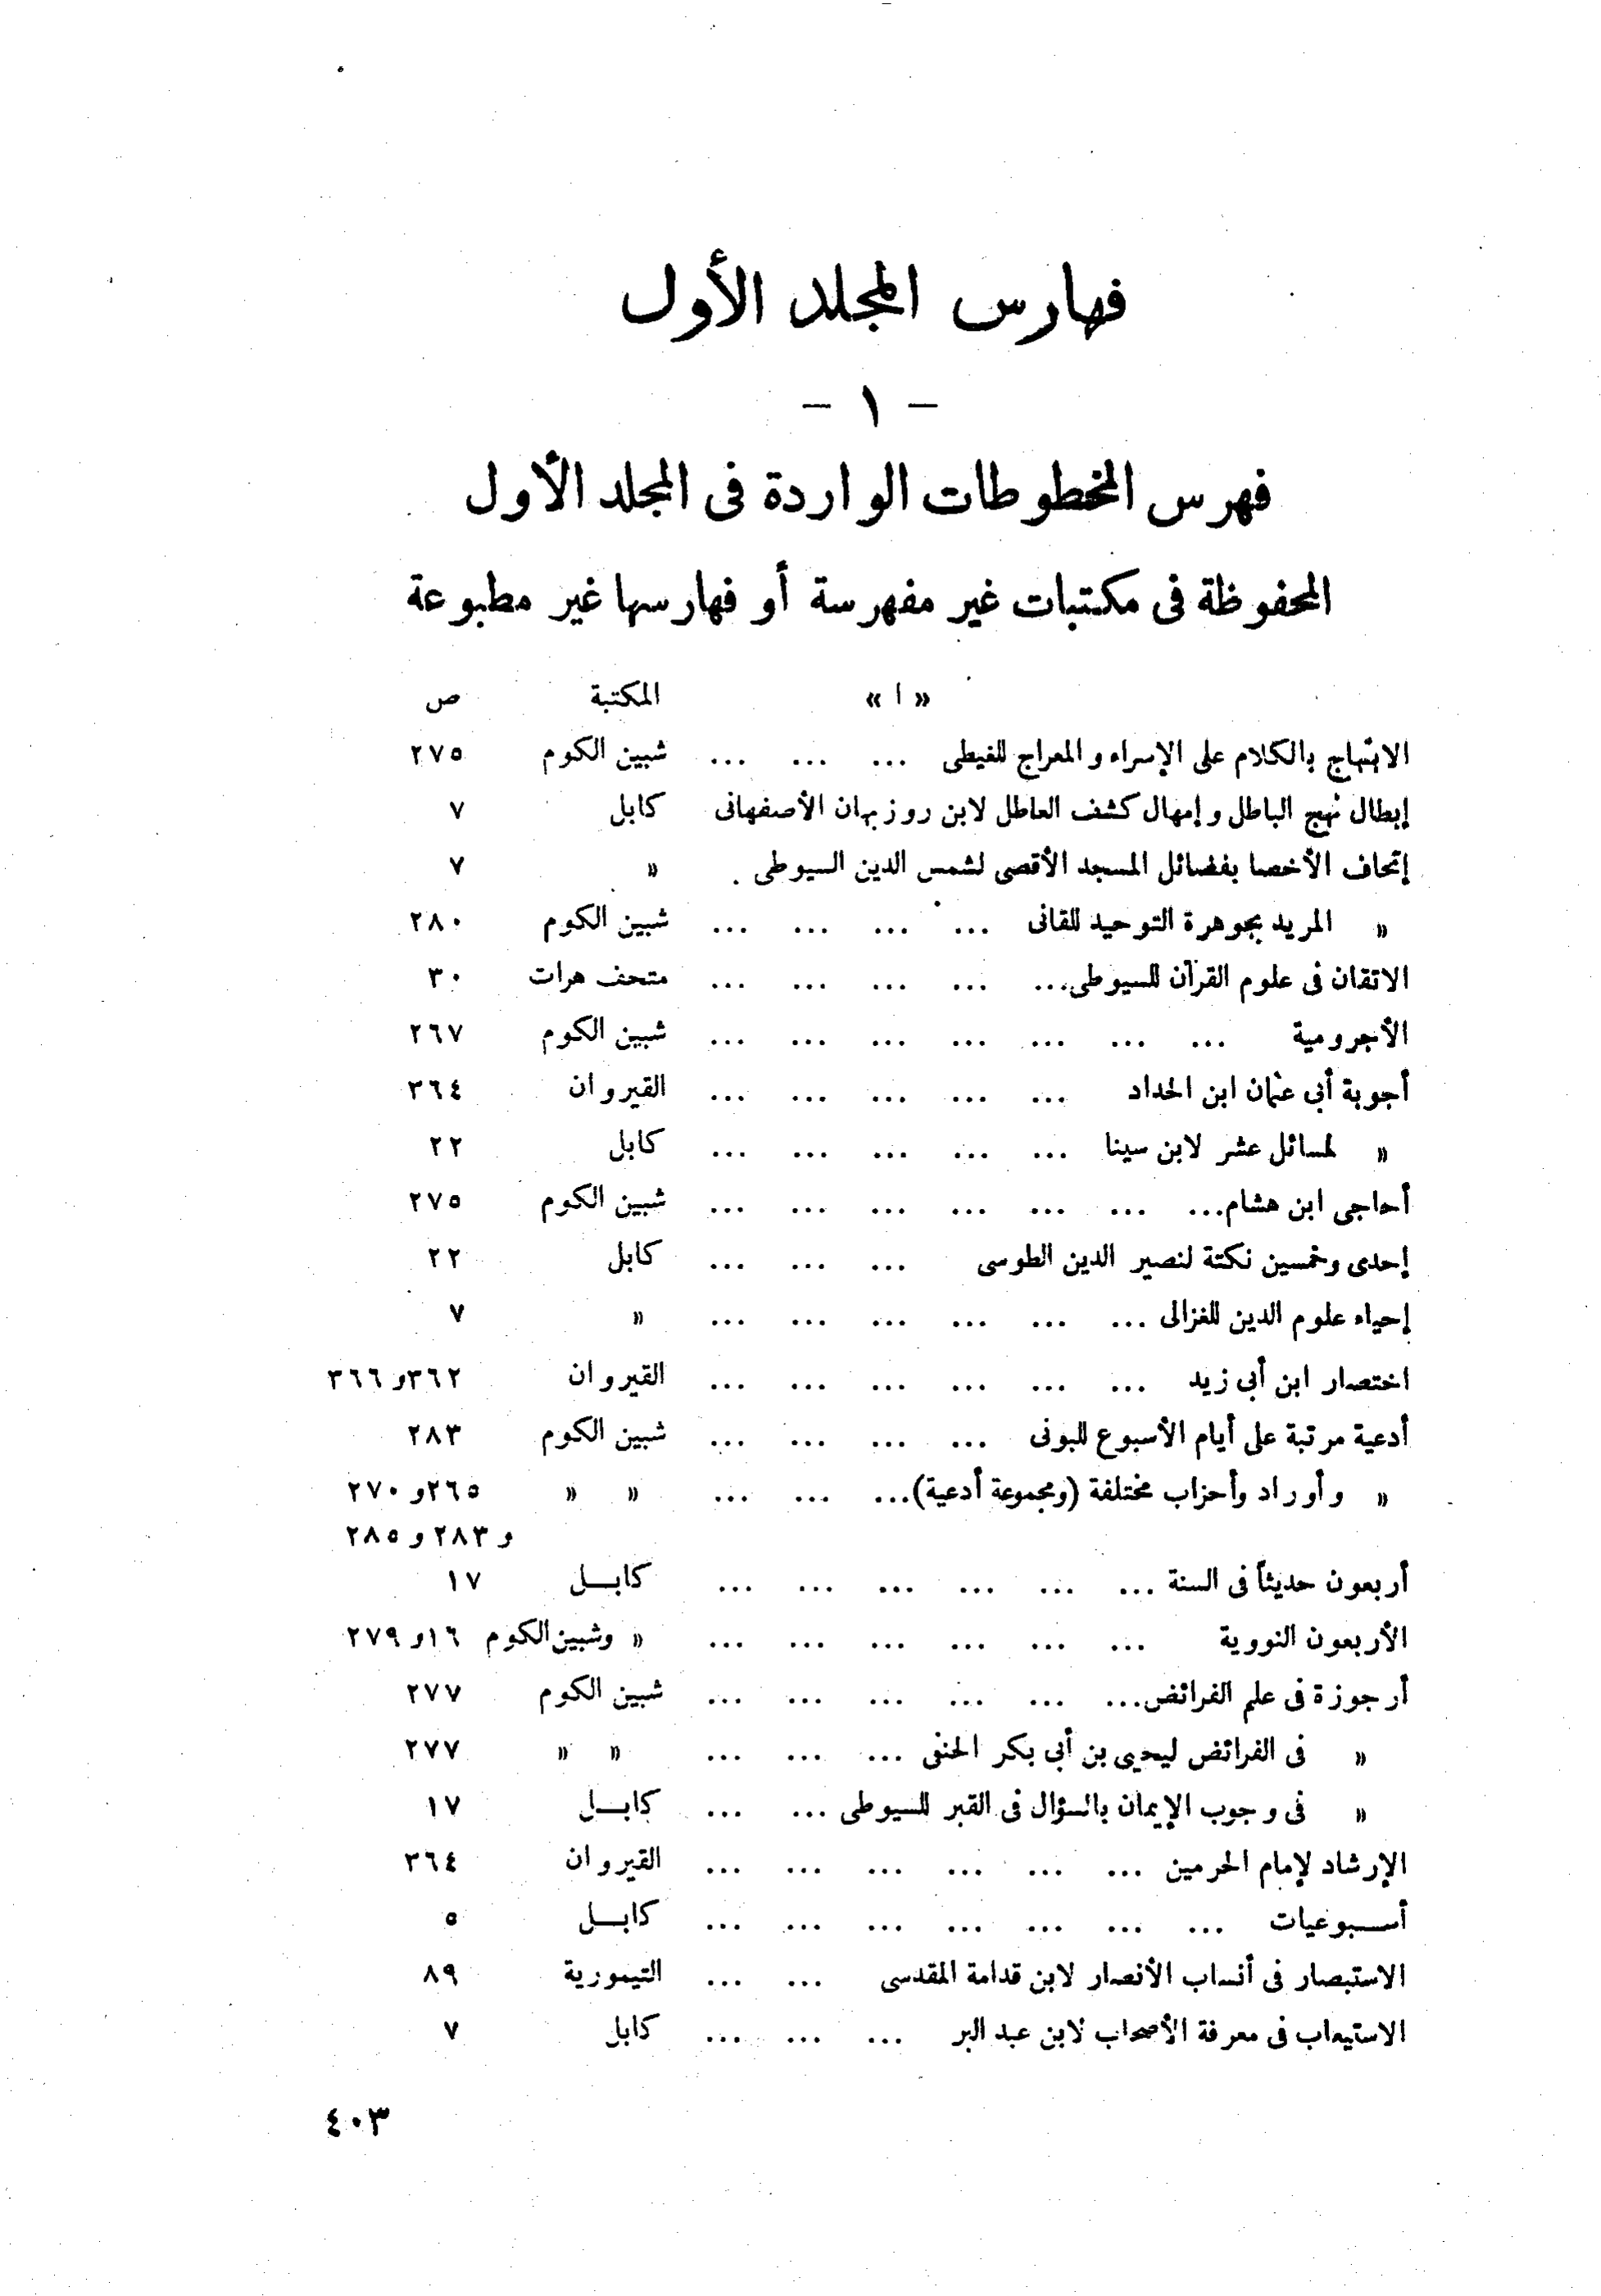 فهارس المجلد الأول
- ١ -
فهرس المخطوطات الواردة فى المجلد الأول
المحفوظة فى مكتبات غير مفهرسة أو فهارسها غير مطبوعة
« ا » المكتبة ص
الابتهاج بالكلام على الإسراء والمعراج للغيطى ... ... ... شبين الكوم ٢٧٥
إبطال نهج الباطل وإمهال كشف العاطل لابن روزبهان الأصفهانى كابل ٧
إتحاف الأخصا بفضائل المسجد الأقصى لشمس الدين السيوطى . » ٧
» المريد بجوهرة التوحيد للقانى ... ... ... ... شبين الكوم ٢٨٠
الاتقان فى علوم القرآن للسيوطى... ... ... ... ... متحف هرات ٣٠
الأجرومية ... ... ... ... ... ... ... شبين الكوم ٢٦٧
أجوبة أبى عثمان ابن الحداد ... ... ... ... ... القيروان ٣٦٤
» لمسائل عشر لابن سينا ... ... ... ... ... كابل ٢٢
أحاجى ابن هشام... ... ... ... ... ... ... شبين الكوم ٢٧٥
إحدى وخمسين نكتة لنصير الدين الطوسى ... ... ... كابل ٢٢
إحياء علوم الدين للغزالى ... ... ... ... ... ... » ٧
اختصار ابن أبى زيد ... ... ... ... ... ... القيروان ٣٦٢و ٣٦٦
أدعية مرتبة على أيام الأسبوع للبونى ... ... ... ... شبين الكوم ٢٨٣
» وأوراد وأحزاب مختلفة (ومجموعة أدعية)... ... ... » » ٢٦٥و ٢٧٠
و ٢٨٣ و ٢٨٥
أربعون حديثاً فى السنة ... ... ... ... ... ... كابـــل ١٧
الأربعون النووية ... ... ... ... ... ... » وشبين الكوم ١٦و ٢٧٩
أرجوزة فى علم الفرائض... ... ... ... ... ... شبين الكوم ٢٧٧
» فى الفرائض ليحيى بن أبى بكر الحنفى ... ... ... » » ٢٧٧
» فى وجوب الإيمان بالسؤال فى القبر للسيوطى ... ... كابـــل ١٧
الإرشاد لإمام الحرمين ... ... ... ... ... ... القيروان ٣٦٤
أســـبوعيات ... ... ... ... ... ... ... كابـــل ٥
الاستبصار فى أنساب الأنصار لابن قدامة المقدسى ... ... التيمورية ٨٩
الاستيعاب فى معرفة الأصحاب لابن عبد البر ... ... ... كابل ٧
٤٠٣